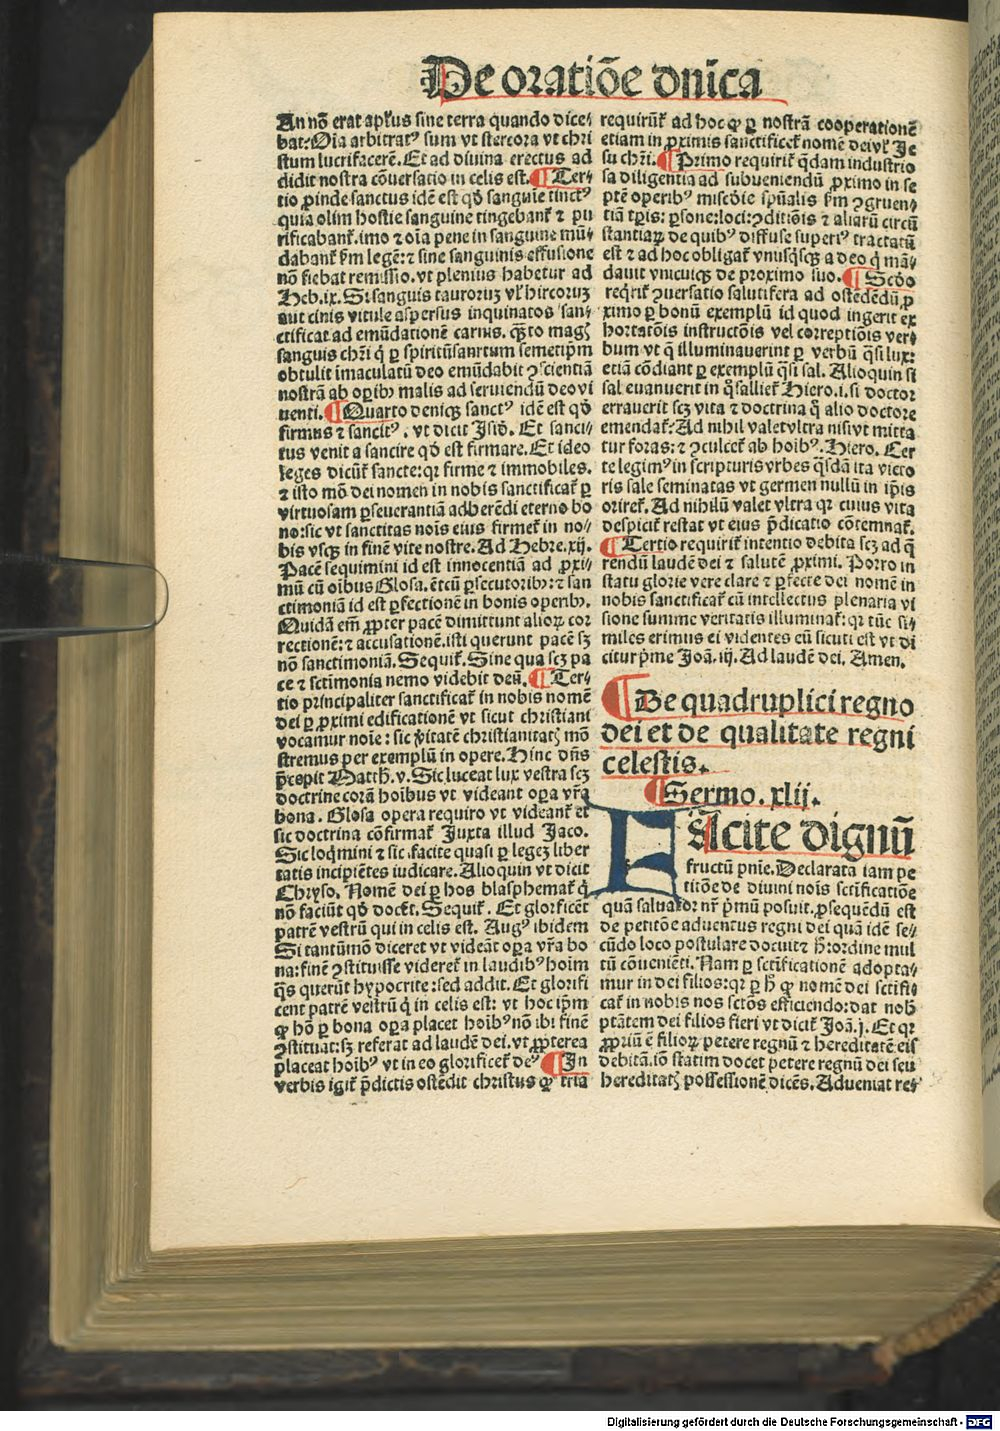 De oratiōe dnīca
An nō erat apl'us sine terra quando dice⸗
bat: Oīa arbitratꝰ sum vt stercora vt chri
stum lucrifacerē. Et ad diuina erectus ad
didit nostra cōuersatio in celis est. ¶ Ter⸗
tio proinde sanctus idē est qď sanguīe tinctꝰ
quia olim hostie sanguine tingebant̄ ⁊ pu
rificabant̄. imo ⁊ oīa pene in sanguine mū⸗
dabant̄ ẜm legē: ⁊ sine sanguinis effusione
nō fiebat remissio. vt plenius habetur ad
Heb. ix. Si sanguis tauroruꝫ vl' hircoruꝫ
aut cinis vitule aspersus inquinatos san⸗
ctificat ad emūdationē carnis. q̄ꝫto magꝭ
sanguis chr̄i q̄ ꝑ spiritūsanctum semetip̄m
obtulit īmaculatū deo emūdabit ꝯscientiā
nostrā ab oꝑibꝰ malis ad seruiendū deo vi
uenti. ¶ Quarto deniqꝫ sanctꝰ idē est qď
firmus ⁊ sancitꝰ. vt dicit Isid̄. Et sanci⸗
tus venit a sancire qď est firmare. Et ideo
leges dicūt̄ sancte: qꝛ firme ⁊ immobiles.
⁊ isto mō dei nomen in nobis sanctificat̄ ꝑ
virtuosam ꝑseuerantiā adherēdi eterno bo
no: sic vt sanctitas nōis eius firmet̄ in no⸗
bis vsqꝫ in finē vite nostre. Ad Hebre. xij.
Pacē sequimini id est innocentiā ad ꝓxi⸗
mū cū oībus Glosa. etcū ꝑsecutoribꝰ: ⁊ san
ctimoniā id est ꝑfectionē in bonis operibꝰ.
Quidā em̄ ꝓpter pacē dimittunt alioꝝ cor
rectionē: ⁊ accusationē. isti querunt pacē sꝫ
nō sanctimoniā. Sequit̄. Sine qua scꝫ pa
ce ⁊ sctīmonia nemo videbit deū. ¶ Ter⸗
tio principaliter sanctificat̄ in nobis nomē
dei ꝑ ꝓximi edificationē vt sicut christiani
vocamur noīe: sic v̄itatē christianitatꝭ mō
stremus per exemplū in opere. Hinc dn̄s
p̄cepit Matth̄. v. Sic luceat lux vestra scꝫ
doctrine corā hoībus vt videant oꝑa vr̄a
bona. Glosa opera requiro vt videant̄ et
sic doctrina cōfirmat̄ Juxta illud Jaco.
Sic loqm̄ini ⁊ sic. facite quasi ꝑ legeꝫ liber
tatis incipiētes iudicare. Alioquin vt dicit
Chryso. Nomē dei ꝑ hos blasphemat̄ q̄
nō faciūt qď docēt. Sequit̄. Et glorificēt
patrē vestrū qui in celis est. Augꝰ ibidem
Si tantūmō diceret vt videāt oꝑa vr̄a bo
na: finē ꝯstituisse videret̄ in laudibꝰ hoīm
q̄s querūt hypocrite: sed addit. Et glorifi
cent patrē vestrū q̄ in celis est: vt hoc ip̄m
ꝙ hō ꝑ bona oꝑa placet hoībꝰ nō ibi finē
ꝯstituat: sꝫ referat ad laudē dei. vt ꝓpterea
placeat hoībꝰ vt in eo glorificet̄ deꝰ ¶ In
verbis igit̄ p̄dictis ostēdit christus ꝙ tria
requirūt̄ ad hoc ꝙ ꝑ nostrā cooperationē
etiam in ꝓximis sanctificet̄ nomē dei vl' Je
su chr̄i. ¶ Primo requirit̄ q̄dam industrio
sa diligentia ad subueniendū ꝓximo in se
ptē operibꝰ mīe sp̄ualis ẜm ꝯgruen⸗
tiā tꝑis: ꝑsone: loci: ꝯditiōis ⁊ aliarū circū
stantiaꝝ de quibꝰ diffuse superiꝰ tractatū
est ⁊ ad hoc obligat̄ vnusq̄sqꝫ a deo q̄ mā⸗
dauit vnicuiqꝫ de proximo suo. ¶ Scd̄o
req̄rit̄ ꝯuersatio salutifera ad ostēdēdū ꝓ
ximo ꝑ bonū exemplū id quod ingerit ex
hortatōis instructōis vel correptiōis ver⸗
bum vt q̄ illuminauerint ꝑ verbū q̄si lux:
etiā cōdiant ꝑ exemplū q̄si sal. Alioquin si
sal euanuerit in q̄ sallief̄ Hiero. i. si doctor
errauerit scꝫ vita ⁊ doctrina q̄ alio doctore
emendat̄: Ad nihil valet vltra nisi vt mitta
tur foras: ⁊ ꝯculcet̄ ab hoībꝰ. Hiero. Cer
te legimꝰ in scripturis vrbes q̄sdā ira victo
ris sale seminatas vt germen nullū in ip̄is
oriret̄. Ad nihilū valet vltra qꝛ cuius vita
despicit̄ restat vt eius p̄dicatio cōtemnat̄.
¶ Tertio requirit̄ intentio debita scꝫ ad q̄
rendū laudē dei ⁊ salutē ꝓximi. Porro in
statu glorie vere clare ⁊ ꝑfecte dei nomē in
nobis sanctificat̄ cū intellectus plenaria vi
sione summe veritatis illuminat̄: qꝛ tūc si⸗
miles erimus ei videntes eū sicuti est vt di
citur prime Joā. iij. Ad laudē dei. Amen.
¶ De quadruplici regno
dei et de qualitate regni
celestis.
¶ Sermo. xlij.
FAcite dignū
fructū pn̄ie. Declarata iam pe
titiōe de diuini noīs sctīficatiōe
quā saluator nr̄ p̄mū posuit. ꝓsequēdū est
de petitōe aduentus regni dei quā idē se⸗
cūdo loco postulare docuit ⁊ h̄: ordine mul
tū cōueniēti. Nam ꝑ sctīficationē adopta⸗
mur in dei filios: qꝛ ꝑ h̄ ꝙ nomē dei sctīfi⸗
cat̄ in nobis nos sctōs efficiendo: dat nob̄
ptātem dei filios fieri vt dicit̄ Joā. j. Et qꝛ
ꝓpriū ē filioꝝ petere regnū ⁊ hereditatē eis
debitā. iō statim docet petere regnū dei seu
hereditatꝭ possessionē dicēs. Adueniat re⸗
Digitalisierung gefördert durch die Deutsche Forschungsgemeinschaft - DFG